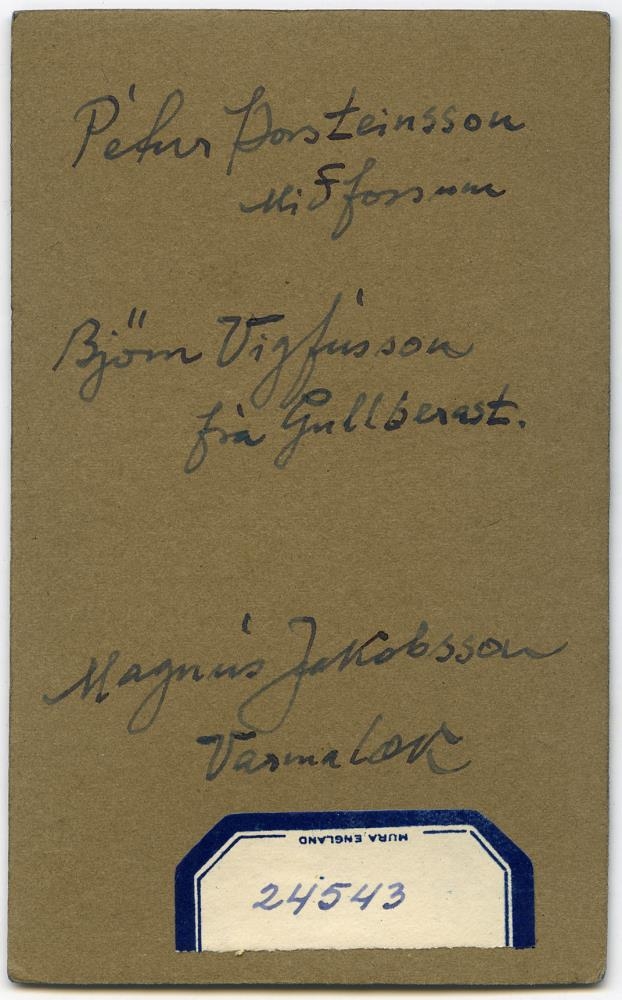 Pétur Þorsteinsson
Miðfossum
Björn Vigfússon
frá Gullberast.
Magnús Jakobsson
Varmalæk
MURA, ENGLAND
24543